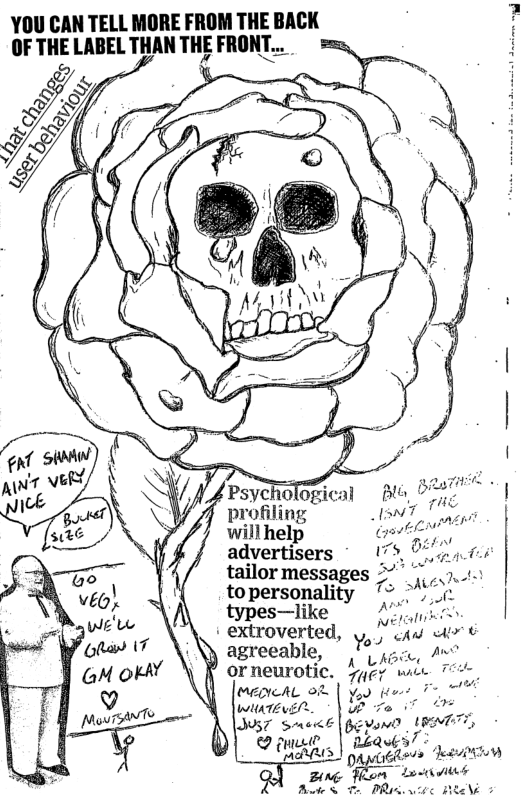 YOU CAN TELL MORE FROM THE BACK
OF THE LABEL THAN THE FRONT...
That changes
user behaviour
FAT SHAMIN
AIN'T VERY
NICE
BUCKET
SIZE
GO
VEG!
WE'LL
GROW IT
GM OKAY
MONTSANTO
Psychological
profiling
will help
advertisers
tailor messages
to personality
types—like
extroverted,
agreeable,
or neurotic.
MEDICAL OR
WHATEVER.
JUST SMOKE
PHILLIP
MORRIS
BIG BROTHER
ISN'T THE
GOVERNMENT
ITS BEEN
SUBCONTRACTED
TO
AND YOUR
NEIGHBORS.
YOU CAN
A LABEL, AND
THEY WILL TELL
YOU HOW TO LIVE
UP TO IT ITS
BEYOND IDENTITY,
REQUEST:
DANGEROUS
ZINE FROM LOUISVILLE
BOOKS TO PRISONERS